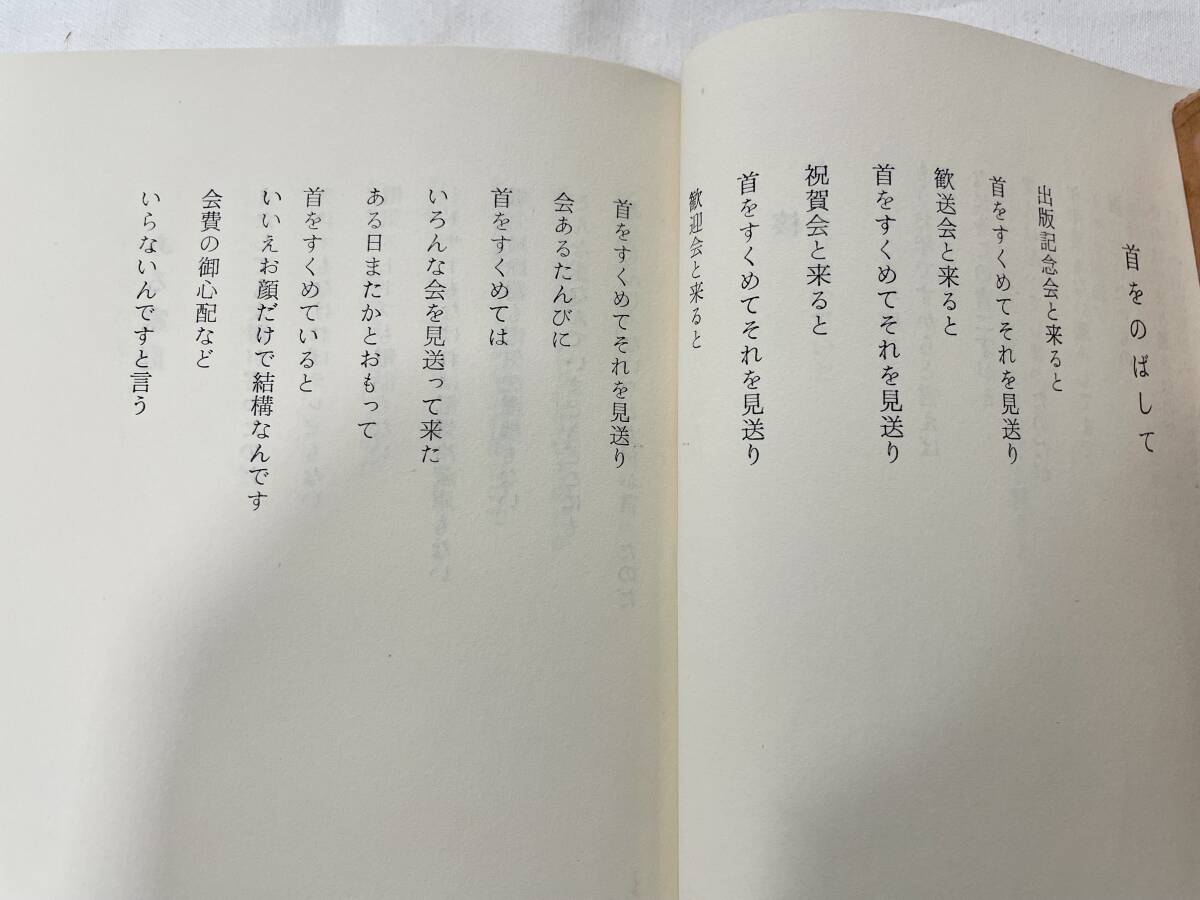 首をのばして
出版記念会と来ると
首をすくめてそれを見送り
歓送会と来ると
首をすくめてそれを見送り
祝賀会と来ると
首をすくめてそれを見送り
歓迎会と来ると
首をすくめてそれを見送り
会あるたんびに
首をすくめては
いろんな会を見送って来た
ある日またかとおもって
首をすくめていると
いいえお顔だけで結構なんです
会費の御心配など
いらないんですと言う